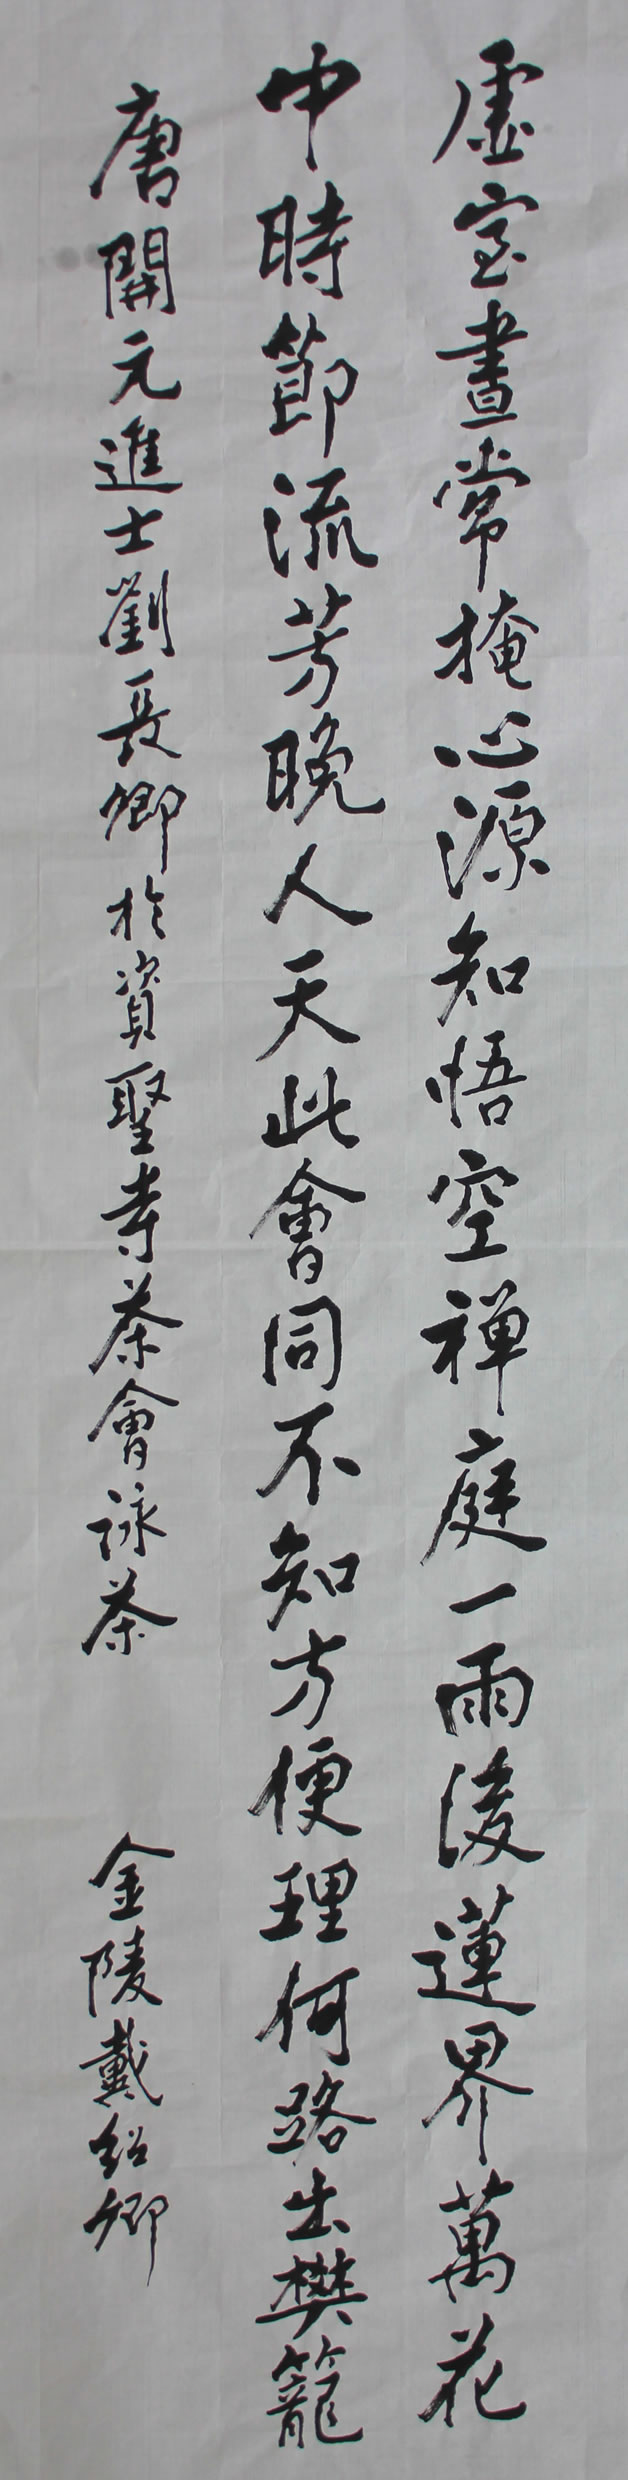 虛室晝常掩心源知悟空禅庭一雨後蓮界萬花
中時節流芳晚人天此會同不知方便理何路出樊籠
唐開元進士劉長卿於資聖寺茶會詠茶
金陵戴紹卿